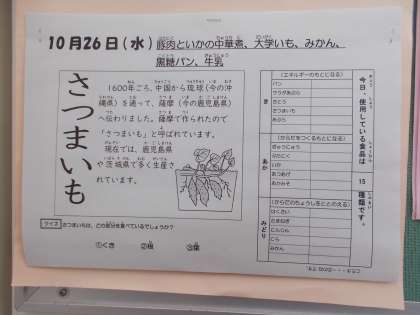 10月26日(水)豚肉といかの中華煮、大学いも、みかん、
黒糖パン、牛乳
さつまいも
1600年ごろ、中国から琉球(今の沖
縄県)を通って、薩摩(今の鹿児島県)
へ伝わりました。薩摩で作られたので
「さつまいも」と呼ばれています。
現在では、鹿児島県
や茨城県で多く生産さ
れています。
クイズ
さつまいもは、どの部分を食べているでしょうか?
①くき ②根 ③葉
今日、使用している食品は
15
種類です。
き
(エネルギーのもとになる)
パン
サラダあぶら
さとう
さつまいも
あぶら
あか
(からだをつくるもとになる)
ぎゅうにゅう
ぶたにく
いか
あつあげ
あかみそ
みどり
(からだのちょうしをととのえる)
はくさい
たまねぎ
にんじん
にら
みかん